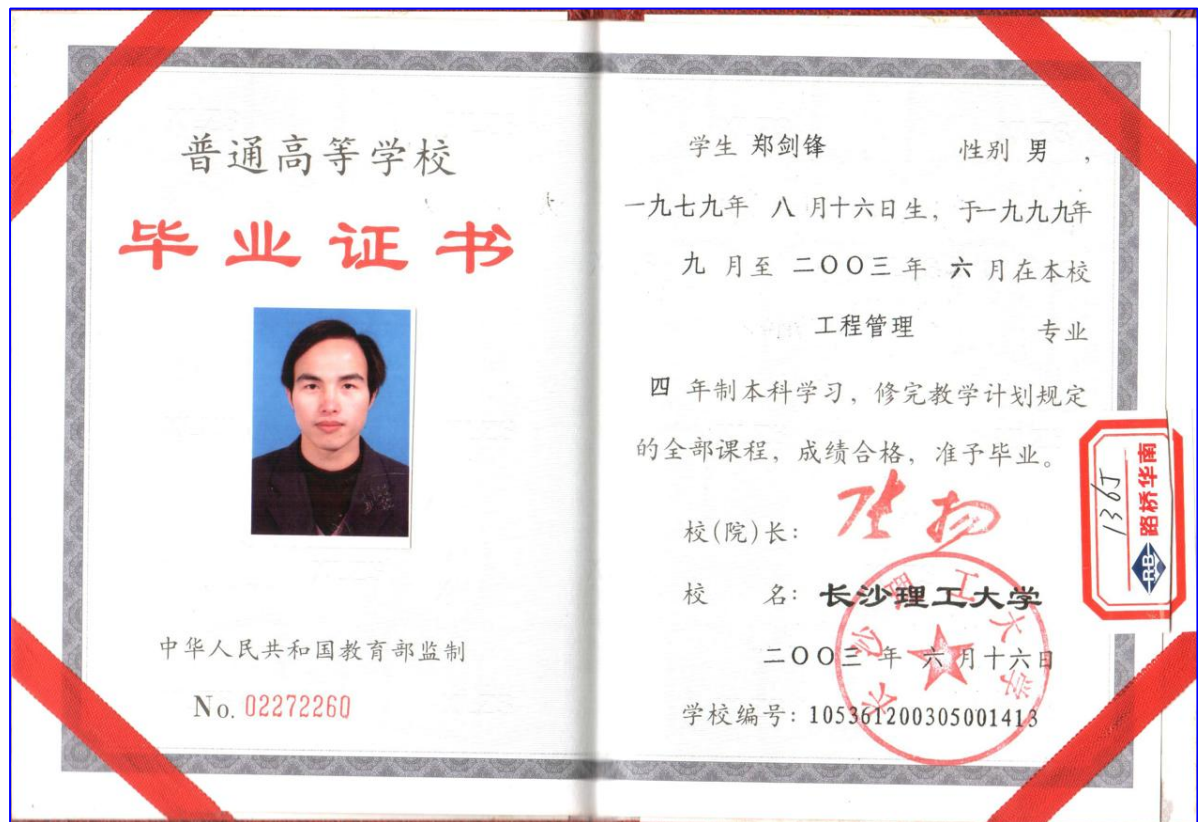 普通高等学校
毕业证书
中华人民共和国教育部监制
No. 02272260
学生 郑剑锋 性别 男 ,
一九七九年 八 月十六日生, 于一九九九年
九 月至 二〇〇三 年 六 月在本校
工程管理 专业
四 年制本科学习, 修完教学计划规定
的全部课程, 成绩合格, 准予毕业。
校(院)长:
校 名: 长沙理工大学
二〇〇三 年 六 月十六日
学校编号: 105361200305001413
长沙理工大学
1365
RB 路桥华南